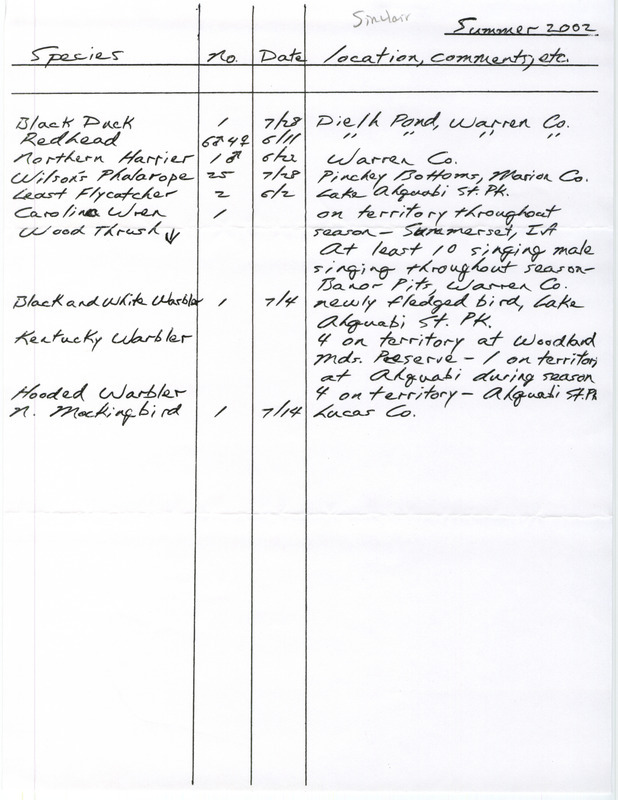 Sinclair
Summer 2002
Species no. Date location, comments, etc.
Black Duck 1 7/28 Dielh Pond, Warren Co.
Redhead 6♂4♀ 6/11 " " "
Northern Harrier 1♂ 6/22 Warren Co.
Wilson's Phalarope 25 7/28 Pinchey Bottoms, Marion Co.
Least Flycatcher 2 6/2 Lake Ahquabi St. Pk.
Carolina Wren 1 on territory throughout
season - Summerset, IA
Wood Thrush ↓ At least 10 singing male
singing throughout season-
Banor Pits, Warren Co.
Black and White Warbler 1 7/4 newly fledged bird, Lake
Ahquabi St. Pk.
Kentucky Warbler 4 on territory at Woodland
Mds. Preserve - 1 on territory
at Ahquabi during season
Hooded Warbler 4 on territory - Ahquabi St. Pk
N. Mockingbird 1 7/14 Lucas Co.